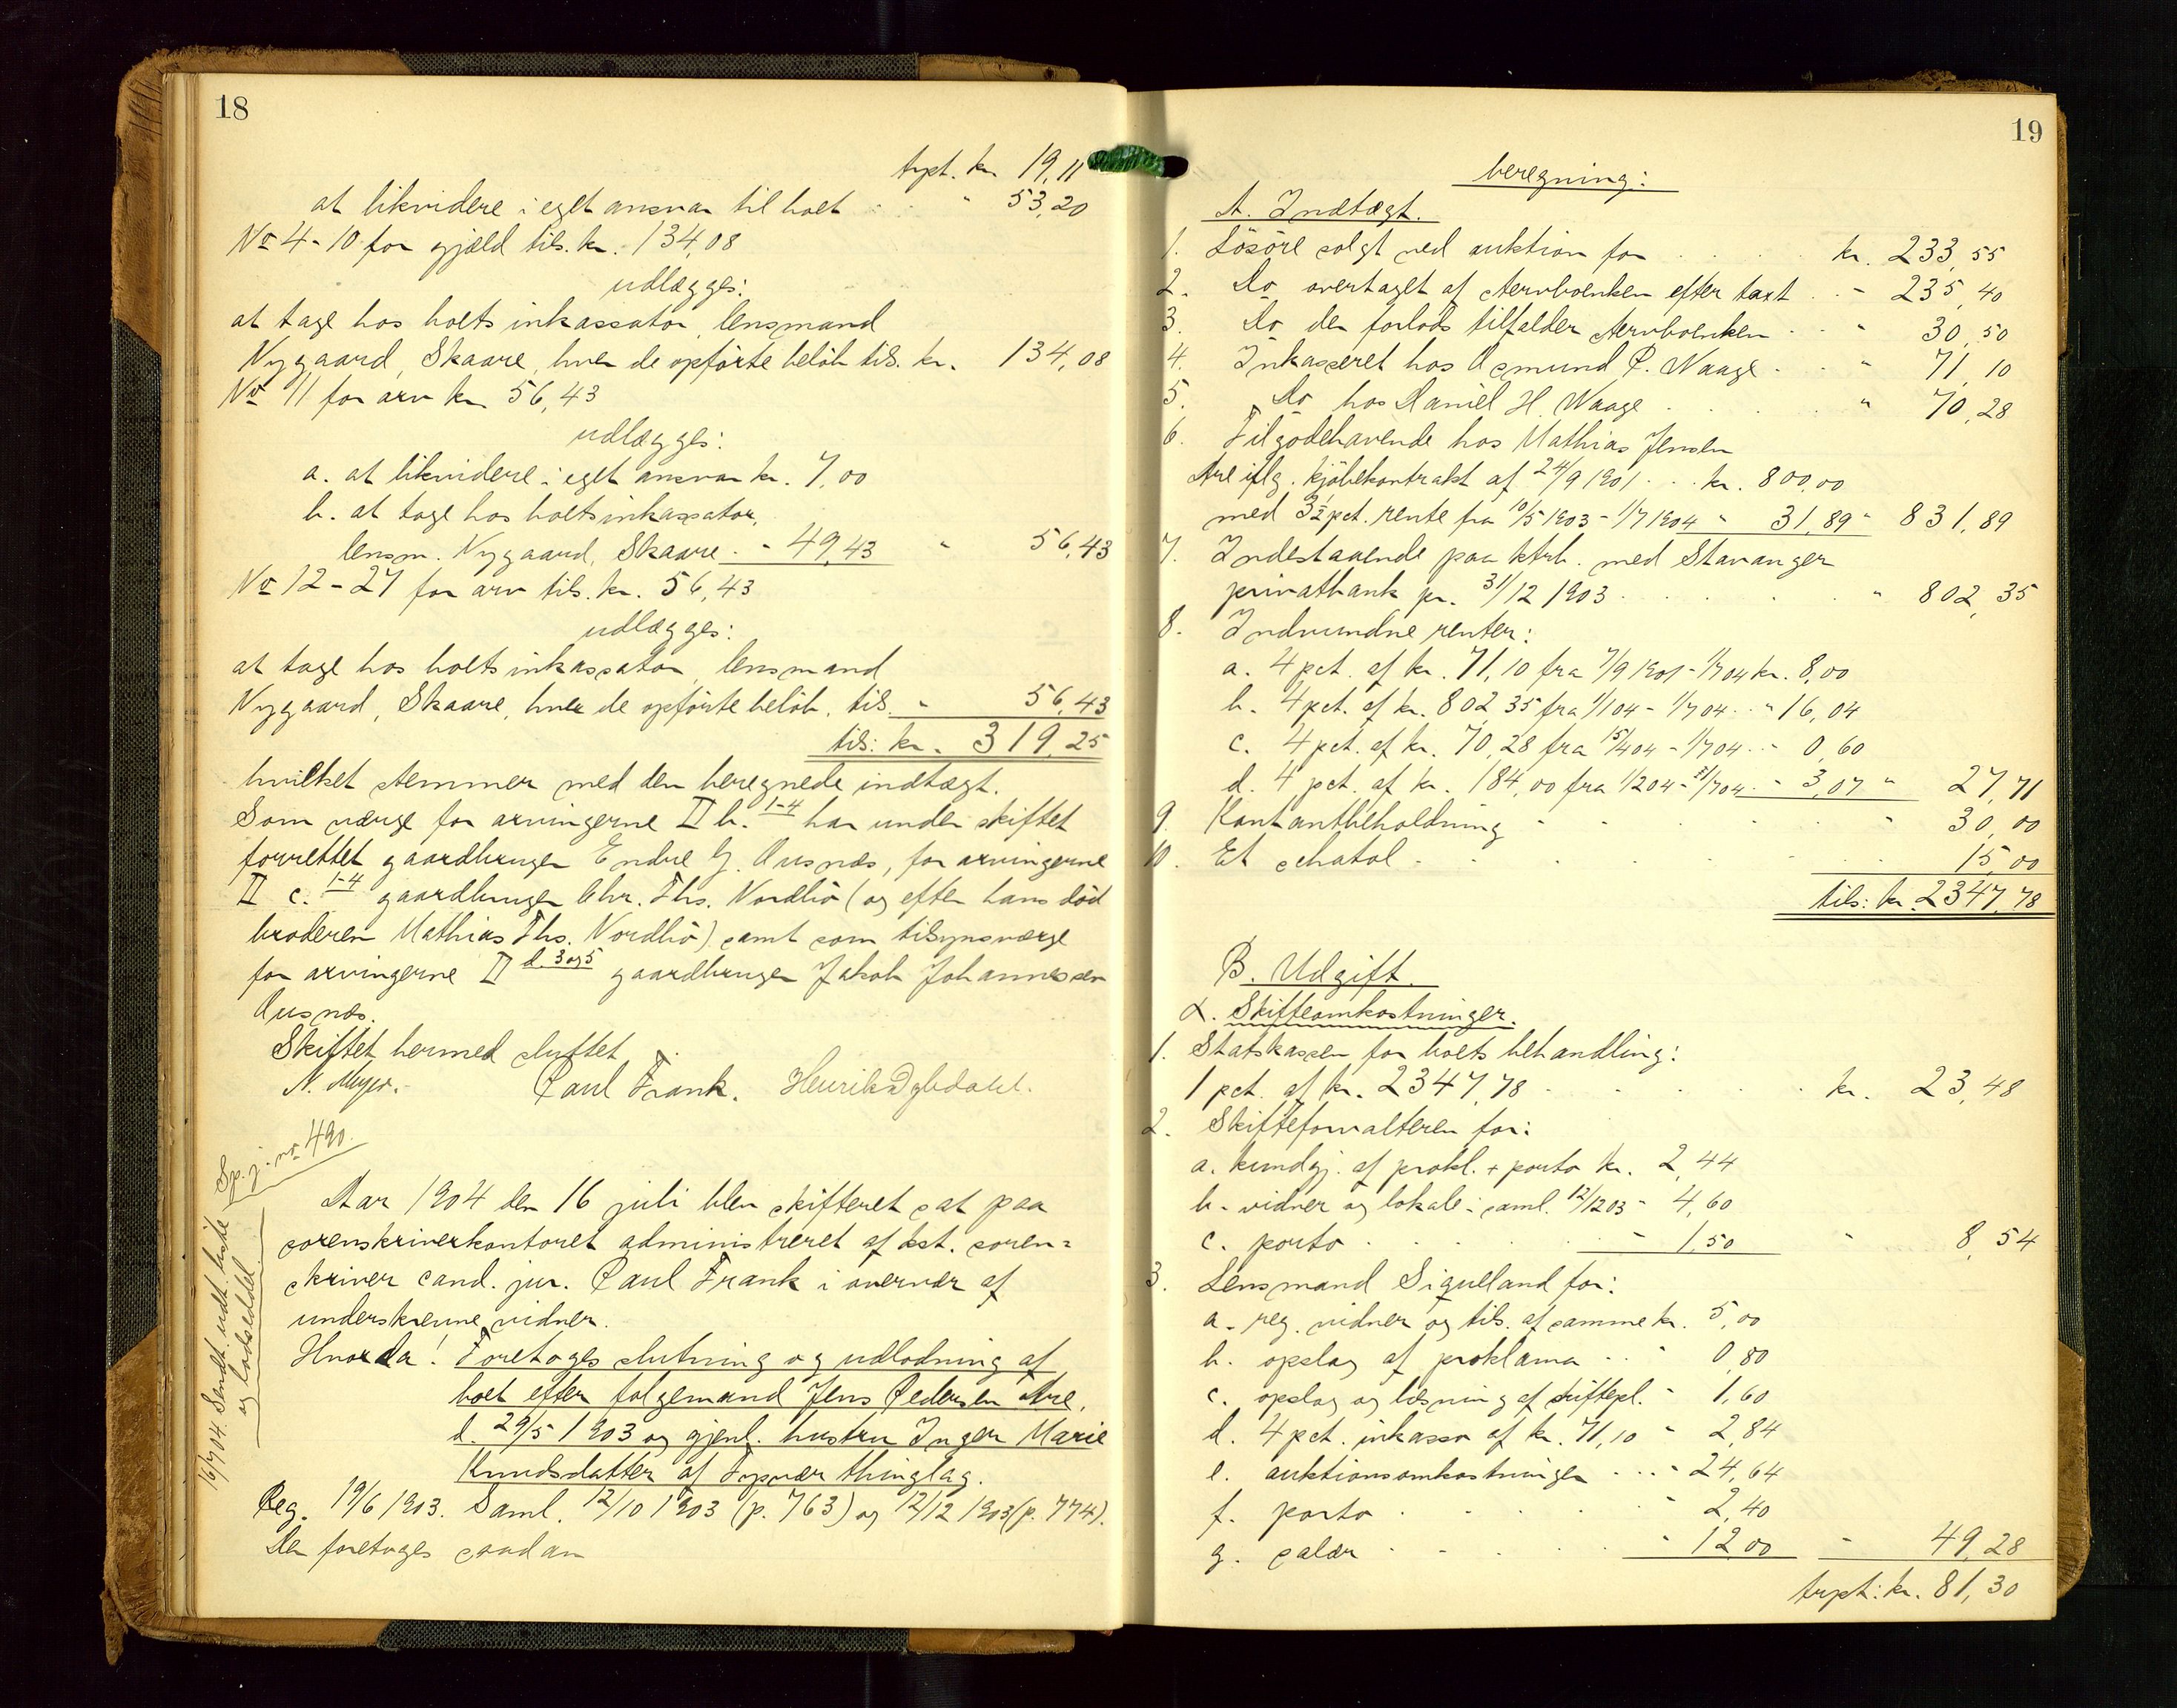 18
trpt. kr. 19,11
at likvidere i eget ansvar til boet " 53,20
No 4-10 for gjæld tils. kr. 134,08
udlægges:
at tage hos boets inkassator, lensmand
Nygaard, Skaare, hver de opførte beløb tils. kr. 134,08
No 11 for arv kr. 56,43
udlægges:
a. at likvidere i eget ansvar kr. 7,00
b. at tage hos boets inkassator,
lensm. Nygaard, Skaare - 49,43 " 56,43
No 12-27 for arv tils. kr. 56,43
udlægges:
at tage hos boets inkassator, lensmand
Nygaard, Skaare, hver de opførte beløb, tils. " 56,43
tils: kr. 319,25
hvilket stemmer med den beregnede indtægt.
Som værge for arvingerne II b. 1-4 har under skiftet
forrettet gaardbruger Endre G. Ausnæs, for arvingerne
II c. 1-4 gaardbruger Chr. Ths. Nordbö (og efter hans död
broderen Mathias Ths. Nordbö) samt som tilsynsværge
for arvingerne II d. 3 og 5 gaardbruger Jakob Johannessen
Ausnæs.
Skiftet hermed sluttet.
N. Meyer. Paul Frank. Henrik Dybdahl.
Sp. j. no 490.
16/7 04. Sendt udt. liste
og lodseddel
Aar 1904 den 16 juli blev skifteret sat paa
sorenskriverkontoret administreret af kst. soren=
skriver cand. jur. Paul Frank i overvær af
underskrevne vidner.
Hvorda! Foretoges slutning og udlodning af
boet efter folgemand Jens Pedersen Are,
d. 29/5 1903 og gjenl. hustru Inger Marie
Knudsdatter af Tysvær thinglag.
Reg. 19/6 1903. Saml. 12/10 1903 (p. 763) og 12/12 1903 (p. 774).
Der foretoges saadan
19
beregning:
A. Indtægt.
1. Lösöre solgt ved auktion for kr. 233,55
2. Do overtaget af Aervboenken efter taxt - 235,40
3. Do der forlods tilfalder Aervboenken " 30,50
4. Inkasseret hos Asmund P. Waage " 71,10
5. Do hos Daniel H. Waage " 70,28
6. Tilgodehavende hos Mathias Jensen
Are iflg. kjöbekontrakt af 24/9 1901 kr. 800,00
med 3½ pct. rente fra 10/5 1903 - 1/7 1904 " 31,89 " 831,89
7. Indestaaende paa ktrb. med Stavanger
privatbank pr. 31/12 1903 " 802,35
8. Indvundne renter:
a. 4 pct. af kr. 71,10 fra 7/9 1901 - 1/7 04 kr. 8,00
b. 4 pct. af kr. 802,35 fra 1/1 04 - 1/7 04 " 16,04
c. 4 pct. af kr. 70,28 fra 15/4 04 - 1/7 04 - 0,60
d. 4 pct. af kr. 184,00 fra 1/2 04 - 1/7 04 - 3,07 " 27,71
9. Kontantbeholdning " 30,00
10. Et schatol 15,00
tils: kr. 2347,78
B. Udgift.
α. Skifteomkostninger.
1. Statskassen for boets behandling:
1 pct. af kr. 2347,78 kr. 23,48
2. Skifteforvalteren for:
a. kundgj. af prokl. + porto kr. 2,44
b. vidner og lokale i saml. 12/12 03 - 4,60
c. porto - 1,50 " 8,54
3. Lensmand Siqueland for:
a. reg. vidner og tils. af samme kr. 5,00
b. opslag af proklama " 0,80
c. opslag og læsning af skiftepl. - 1,60
d. 4 pct. inkasso af kr. 71,10 " 2,84
e. auktionsomkostninger - 24,64
f. porto " 2,40
g. salær " 12,00 - 49,28
trpt: kr. 81,30